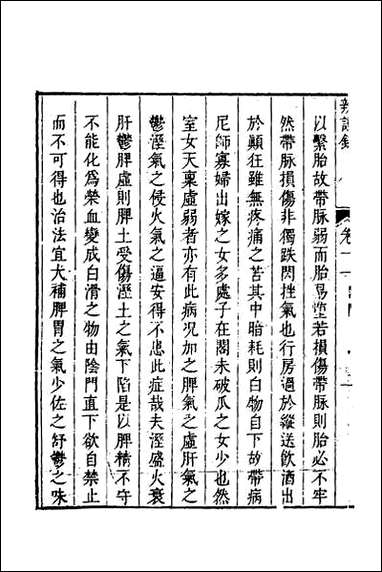 辨證錄
卷十一
以繫胎故帶脉弱而胎易墮若損傷帶脉則胎必不牢
然帶脉損傷非獨跌閃挫氣也行房過於縱送飲酒出
於顛狂雖無疼痛之苦其中暗耗則白物自下故帶病
尼師寡婦出嫁之女多處子在閣未破瓜之女少也然
室女天稟虛弱者亦有此病况加之脾氣之虛肝氣之
鬱溼氣之侵火氣之逼安得不患此症哉夫溼盛火衰
肝鬱脾虛則脾土受傷溼土之氣下陷是以脾精不守
不能化爲榮血變成白滑之物由陰門直下欲自禁止
而不可得也治法宜大補脾胃之氣少佐之舒鬱之味